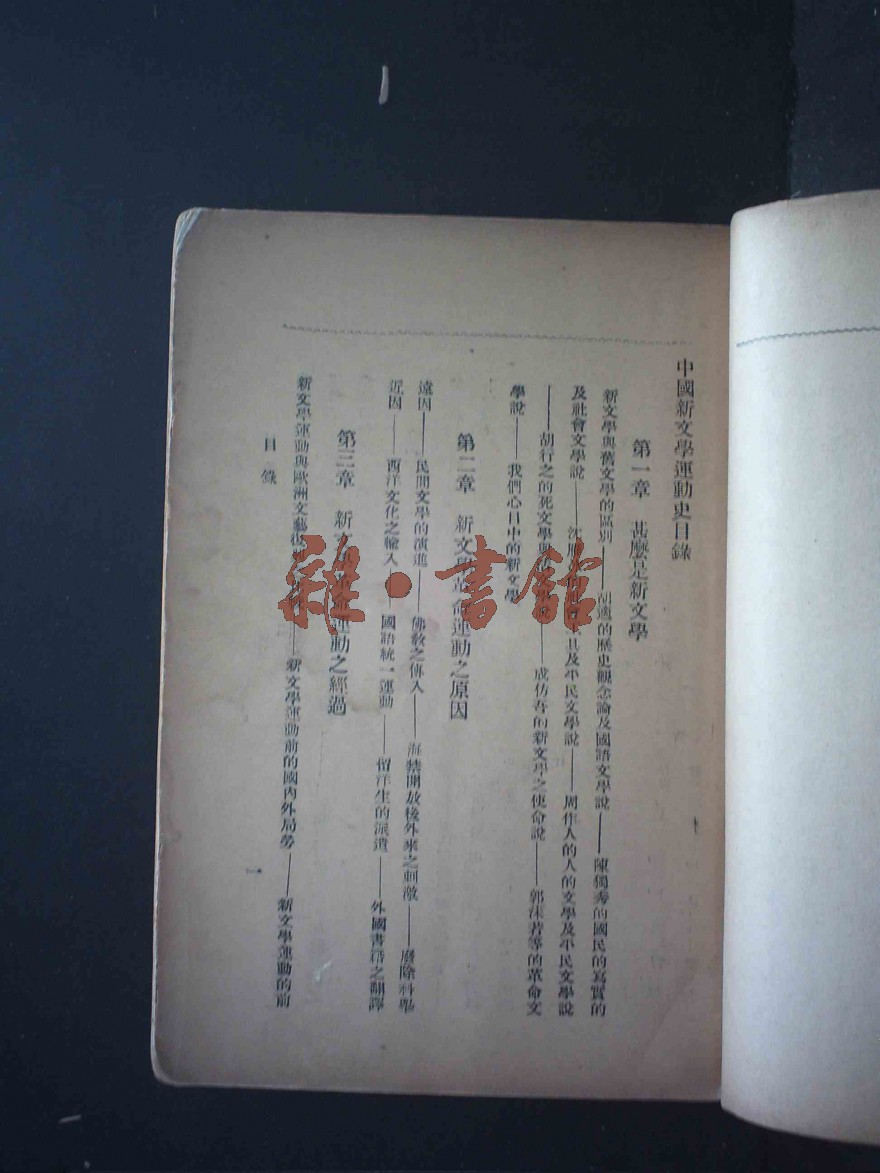 中國新文學運動史目錄
第一章 甚麼是新文學
新文學與舊文學的區別——胡適的歷史觀念論及國語文學說——陳獨秀的國民的寫實的
及社會文學說——沈雁 及平民文學說——周作人的人的文學及平民文學說
——胡行之的死文學與活文學說——成仿吾的新文學之使命說——郭沫若等的革命文
學說——我們心目中的新文學
第二章 新文學革命運動之原因
遠因——民間文學的演進——佛教之傳入——海禁開放後外來之刺激——廢除科舉
近因——西洋文化之輸入——國語統一運動——留洋生的派遣——外國書籍之翻譯
第三章 新文學革命運動之經過
新文學運動與歐洲文藝復 ——新文學運動前的國內外局勢——新文學運動的前
目錄
一
雜·書館